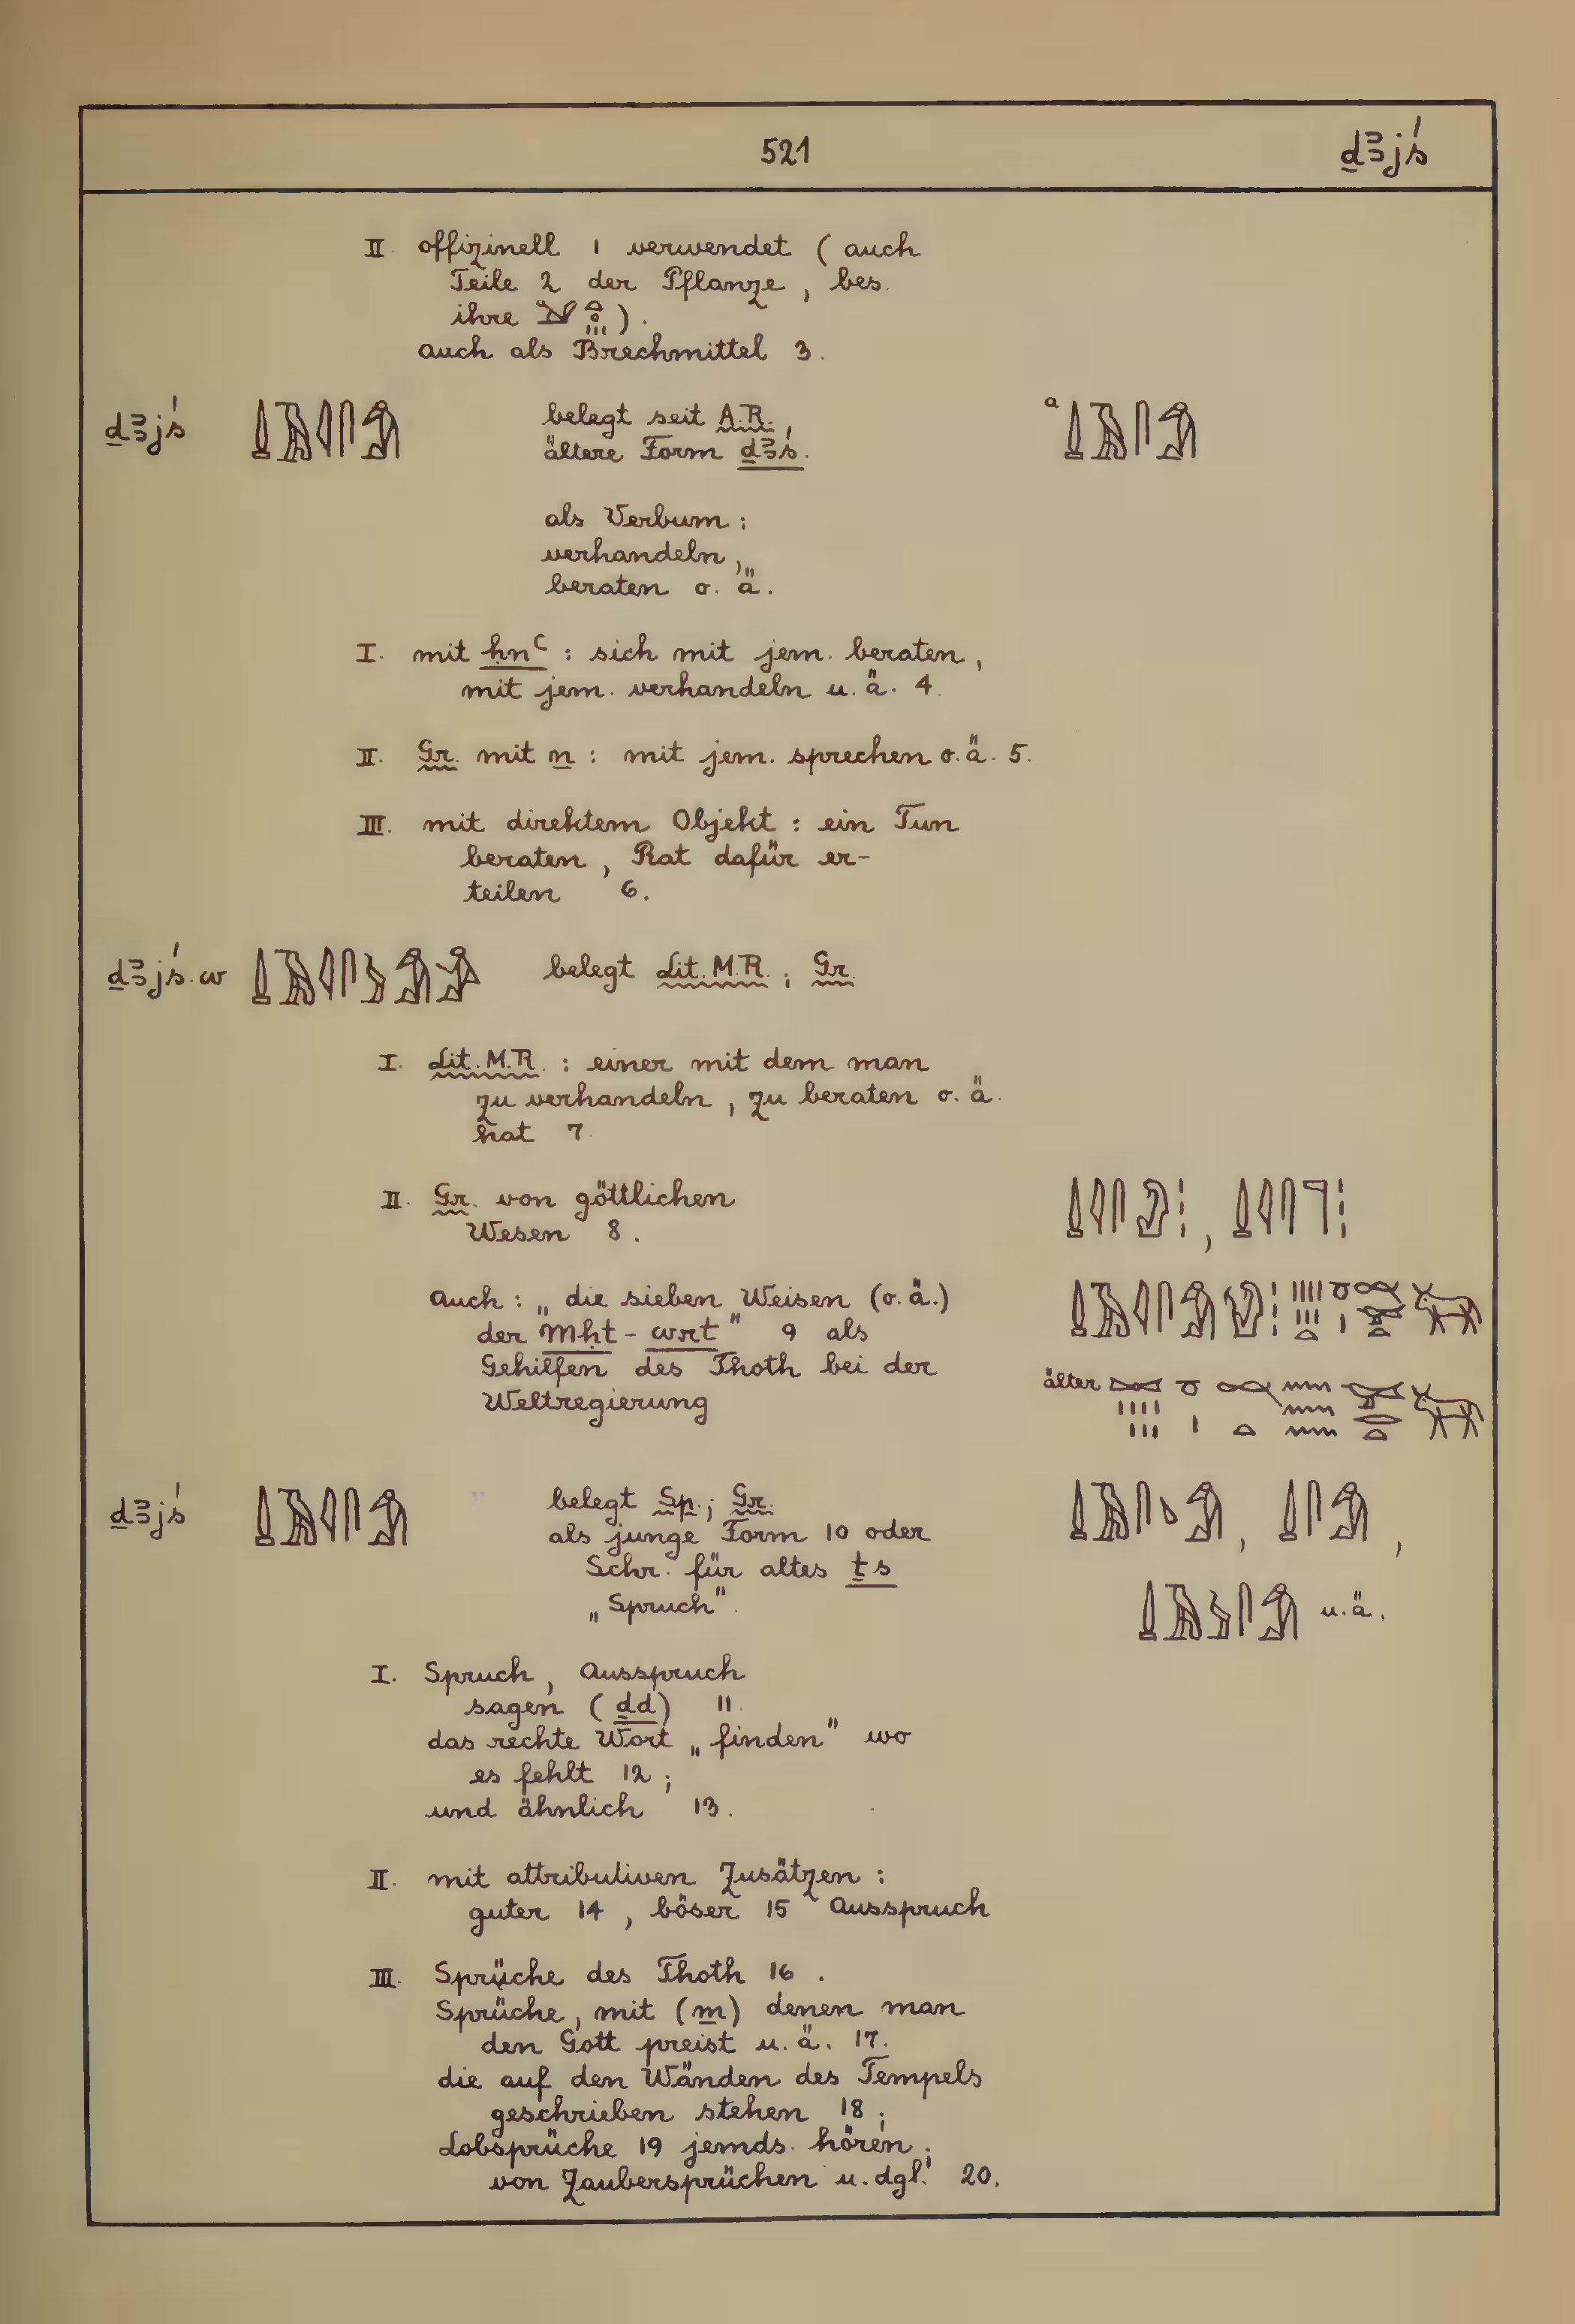 521 ḏꜣjś
II. offizinell 1 verwendet (auch
Teile 2 der Pflanze, bes.
ihre ).
auch als Brechmittel 3.
ḏꜣjś belegt seit A.R.,
ältere Form ḏꜣś. a
als Verbum:
verhandeln,
beraten o. ä.
I. mit ḥnꜥ: sich mit jem. beraten,
mit jem. verhandeln u. ä. 4.
II. Gr. mit n: mit jem. sprechen o. ä. 5.
III. mit direktem Objekt: ein Tun
beraten, Rat dafür er-
teilen 6.
ḏꜣjś.w belegt Lit. M.R.; Gr.
I. Lit. M.R.: einer mit dem man
zu verhandeln, zu beraten o. ä.
hat 7.
II. Gr. von göttlichen
Wesen 8. ,
auch: „die sieben Weisen (o. ä.)
der Mḥt-wrt" 9 als
Gehilfen des Thoth bei der
Weltregierung
älter
ḏꜣjś belegt Sp.; Gr.
als junge Form 10 oder , ,
Schr. für altes ṯs
„Spruch". u. ä.
I. Spruch, Ausspruch
sagen (ḏd) 11.
das rechte Wort „finden" wo
es fehlt 12;
und ähnlich 13.
II. mit attributiven Zusätzen:
guter 14, böser 15 Ausspruch
III. Sprüche des Thoth 16.
Sprüche, mit (m) denen man
den Gott preist u. ä. 17.
die auf den Wänden des Tempels
geschrieben stehen 18;
Lobsprüche 19 jemds. hören;
von Zaubersprüchen u. dgl. 20.